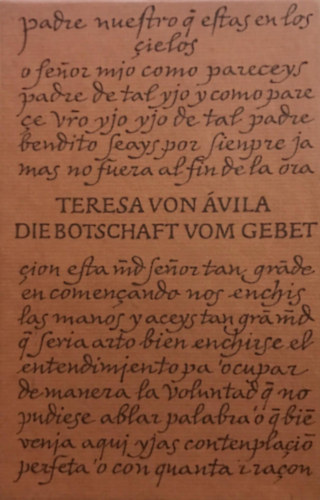 padre nuestro q̄ estas en los
çielos
o señor mio como pareceys
padre de tal yjo y como pare
çe vr̄o yjo yjo de tal padre
bendito seays por sienpre ja
mas no fuera al fin de la ora
TERESA VON ÁVILA
DIE BOTSCHAFT VOM GEBET
çion esta m̄d señor tan grāde
en començando nos enchis
las manos y aceys tan grā m̄d
q̄ seria arto bien enchirse el
entendimjento pa ocupar
de manera la voluntad q̄ no
pudiese ablar palabra o q̄ biē
venja aqui yjas contenplaciō
perfeta o con quanta rraçon